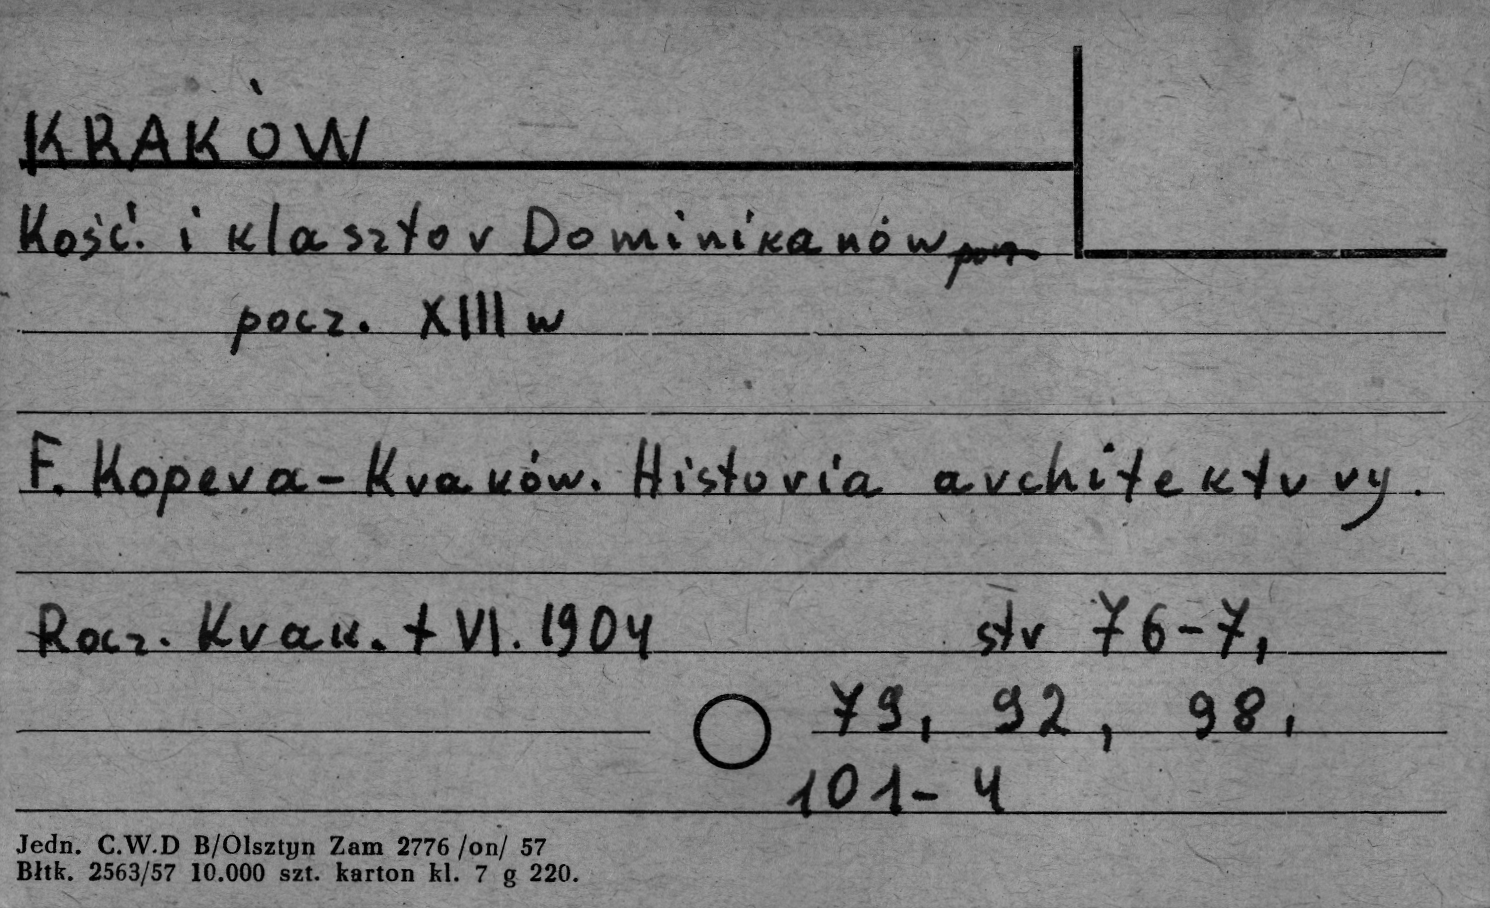 KRAKÓW
Kość. i klasztor Dominikanów pocz.
pocz. XIII w
F. Kopera - Kraków. Historia architektury.
Rocz. Krak. t VI. 1904 str 76-7,
79, 92, 98,
101-4
Jedn. C.W.D B/Olsztyn Zam 2776 /on/ 57
Błtk. 2563/57 10.000 szt. karton kl. 7 g 220.